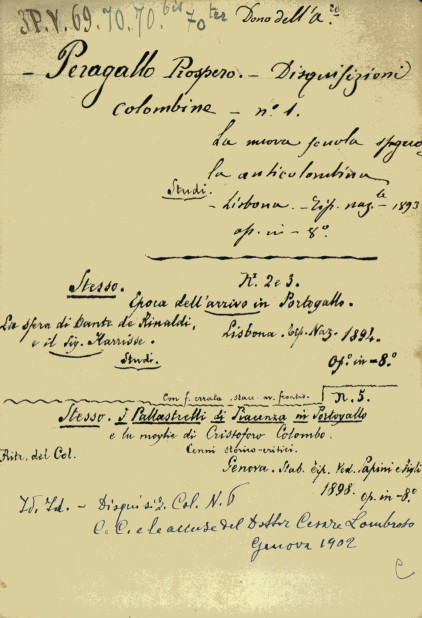 3P.V. 69. 70. 70.bis 70ter Dono dell'a.re
— Peragallo Prospero. — Disquisizioni
colombine — n.o 1.
La nuova scuola spagno
la anticolombina
Studi.
— Lisbona. — Tip. naz.le — 1893
op. in — 8.o
Stesso. N.i 2 e 3.
Epoca dell'arrivo in Portogallo.
La sfera di Dante de Rinaldi,
e il Sig. Harrisse. Lisbona. Tip. Naz. 1894.
Studi. Op.o in — 8.o
Con f. errata stacc. av. frontis. N. 5.
Stesso. I Pallastrelli di Piacenza in Portogallo
e la moglie di Cristoforo Colombo.
Ritr. del Col. Cenni storico-critici.
Genova. Stab. tip. Ved. Papini e Figli
1898. op. in — 8.o
Id. Id. — Disquisiz. Col. N. 6
C. C. e le accuse del Dottor Cesare Lombroso
Genova 1902
C